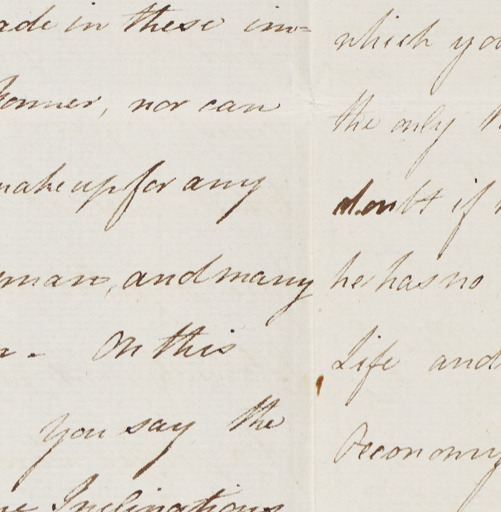 ade in these im=
former, nor can
make up for any
man, and many
On this
you say the
Inclinations
which yo
the only
doubt if
he has no
Life and
Oeconomy